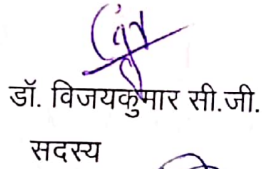 डॉ. विजयकुमार सी.जी.
सदस्य